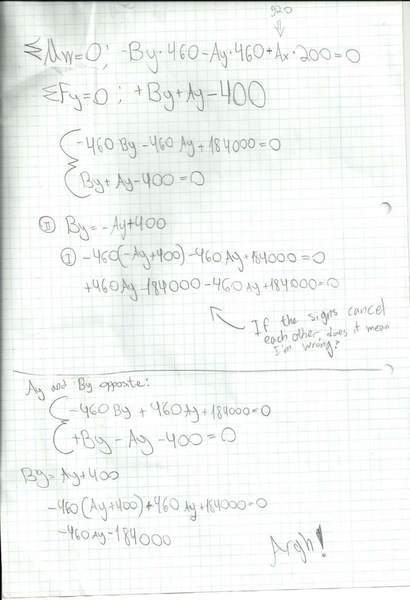 920
ΣMw=0; -By·460-Ay·460+Ax·200=0
ΣFy=0; +By+Ay-400
-460By-460Ay+184000=0
By+Ay-400=0
II By=-Ay+400
I -460(-Ay+400)-460Ay+184000=0
+460Ay-184000-460Ay+184000=0
If the signs cancel
each other does it mean
I'm wrong?
Ay and By opposite:
-460By+460Ay+184000=0
+By-Ay-400=0
By=Ay+400
-460(Ay+400)+460Ay+184000=0
-460Ay-184000
Argh!